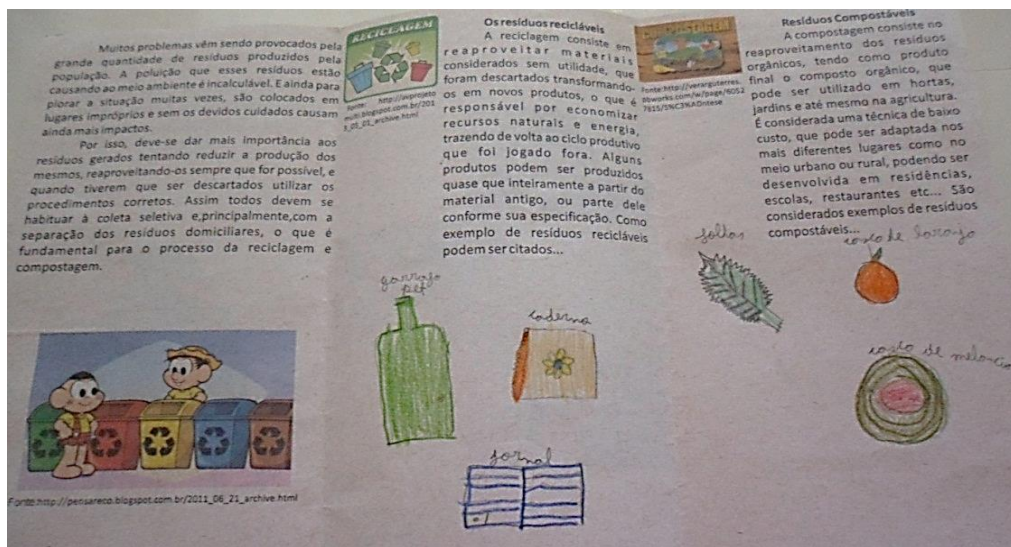 Muitos problemas vêm sendo provocados pela
grande quantidade de resíduos produzidos pela
população. A poluição que esses resíduos estão
causando ao meio ambiente é incalculável. E ainda para
piorar a situação muitas vezes, são colocados em
lugares impróprios e sem os devidos cuidados causam
ainda mais impactos.
Por isso, deve-se dar mais importância aos
resíduos gerados tentando reduzir a produção dos
mesmos, reaproveitando-os sempre que for possível, e
quando tiverem que ser descartados utilizar os
procedimentos corretos. Assim todos devem se
habituar à coleta seletiva e,principalmente,com a
separação dos resíduos domiciliares, o que é
fundamental para o processo da reciclagem e
compostagem.
Fonte:http://pensareco.blogspot.com.br/2011_06_21_archive.html
RECICLAGEM
Fonte:
Os resíduos recicláveis
A reciclagem consiste em
reaproveitar materiais
considerados sem utilidade, que
foram descartados transformando-
os em novos produtos, o que é
responsável por economizar
recursos naturais e energia,
trazendo de volta ao ciclo produtivo
que foi jogado fora. Alguns
produtos podem ser produzidos
quase que inteiramente a partir do
material antigo, ou parte dele
conforme sua especificação. Como
exemplo de resíduos recicláveis
podem ser citados...
garrafa
pet
caderno
jornal
COMPOSTAGEM
Resíduos Compostáveis
A compostagem consiste no
reaproveitamento dos resíduos
orgânicos, tendo como produto
final o composto orgânico, que
pode ser utilizado em hortas,
jardins e até mesmo na agricultura.
É considerada uma técnica de baixo
custo, que pode ser adaptada nos
mais diferentes lugares como no
meio urbano ou rural, podendo ser
desenvolvida em residências,
escolas, restaurantes etc... São
considerados exemplos de resíduos
compostáveis...
casca de laranja
casca de melancia